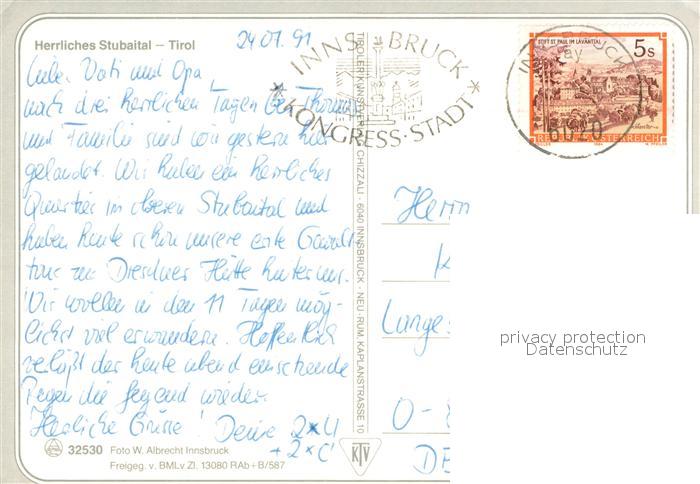 Herrliches Stubaital – Tirol
24.07.91
Lieber Vati und Opa,
nach drei herrlichen Tagen bei Thomas
und Familie sind wir gestern hier
gelandet. Wir haben ein herrliches
Quartier im oberen Stubaital und
haben heute schon unsere erste Gewalt-
tour zur Dresdner Hütte hinter uns.
Wir wollen in den 11 Tagen mög-
lichst viel erwandern. Hoffentlich
verläßt der heute abend einsetzende
Regen die Gegend wieder.
Herzliche Grüße! Deine 2xU
+ 2xC
32530 Foto W. Albrecht Innsbruck
Freigeg. v. BMLv Zl. 13080 RAb+B/587
TIROLER KUNSTVERLAG CHIZZALI · 6040 INNSBRUCK - NEU-RUM, KAPLANSTRASSE 10
KTV
INNSBRUCK
KONGRESS-STADT
STIFT ST. PAUL IM LAVANTTAL
5 S
REPUBLIK ÖSTERREICH
INNSBRUCK
6020
Herrn
K
Lange
O-
DE
privacy protection
Datenschutz